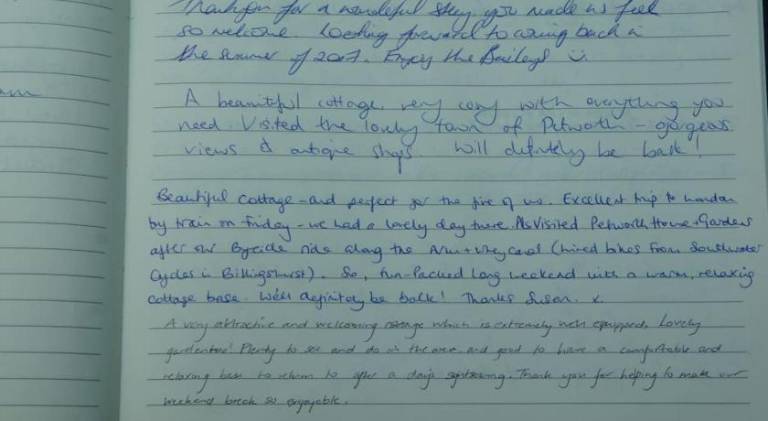 Thankyou for a wonderful stay, you made us feel
so welcome. Looking forward to coming back in
the summer of 2017. Enjoy the Baileys
A beautiful cottage, very cosy with everything you
need. Visited the lovely town of Petworth - gorgeous
views & antique shops. Will definitely be back!
Beautiful cottage - and perfect for the five of us. Excellent trip to London
by train on Friday - we had a lovely day there. Visited Petworth House + Gardens
after our bycicle ride along the Arun + Wey canal (hired bikes from Southwater
Cycles in Billingshurst). So, fun-packed long weekend with a warm, relaxing
cottage base. We'll definitely be back! Thanks Susan. x
A very attractive and welcoming cottage which is extremely well equipped. Lovely
garden too! Plenty to see and do in the area and good to have a comfortable and
relaxing base to return to after a days sightseeing. Thank you for helping to make our
weekend break so enjoyable.